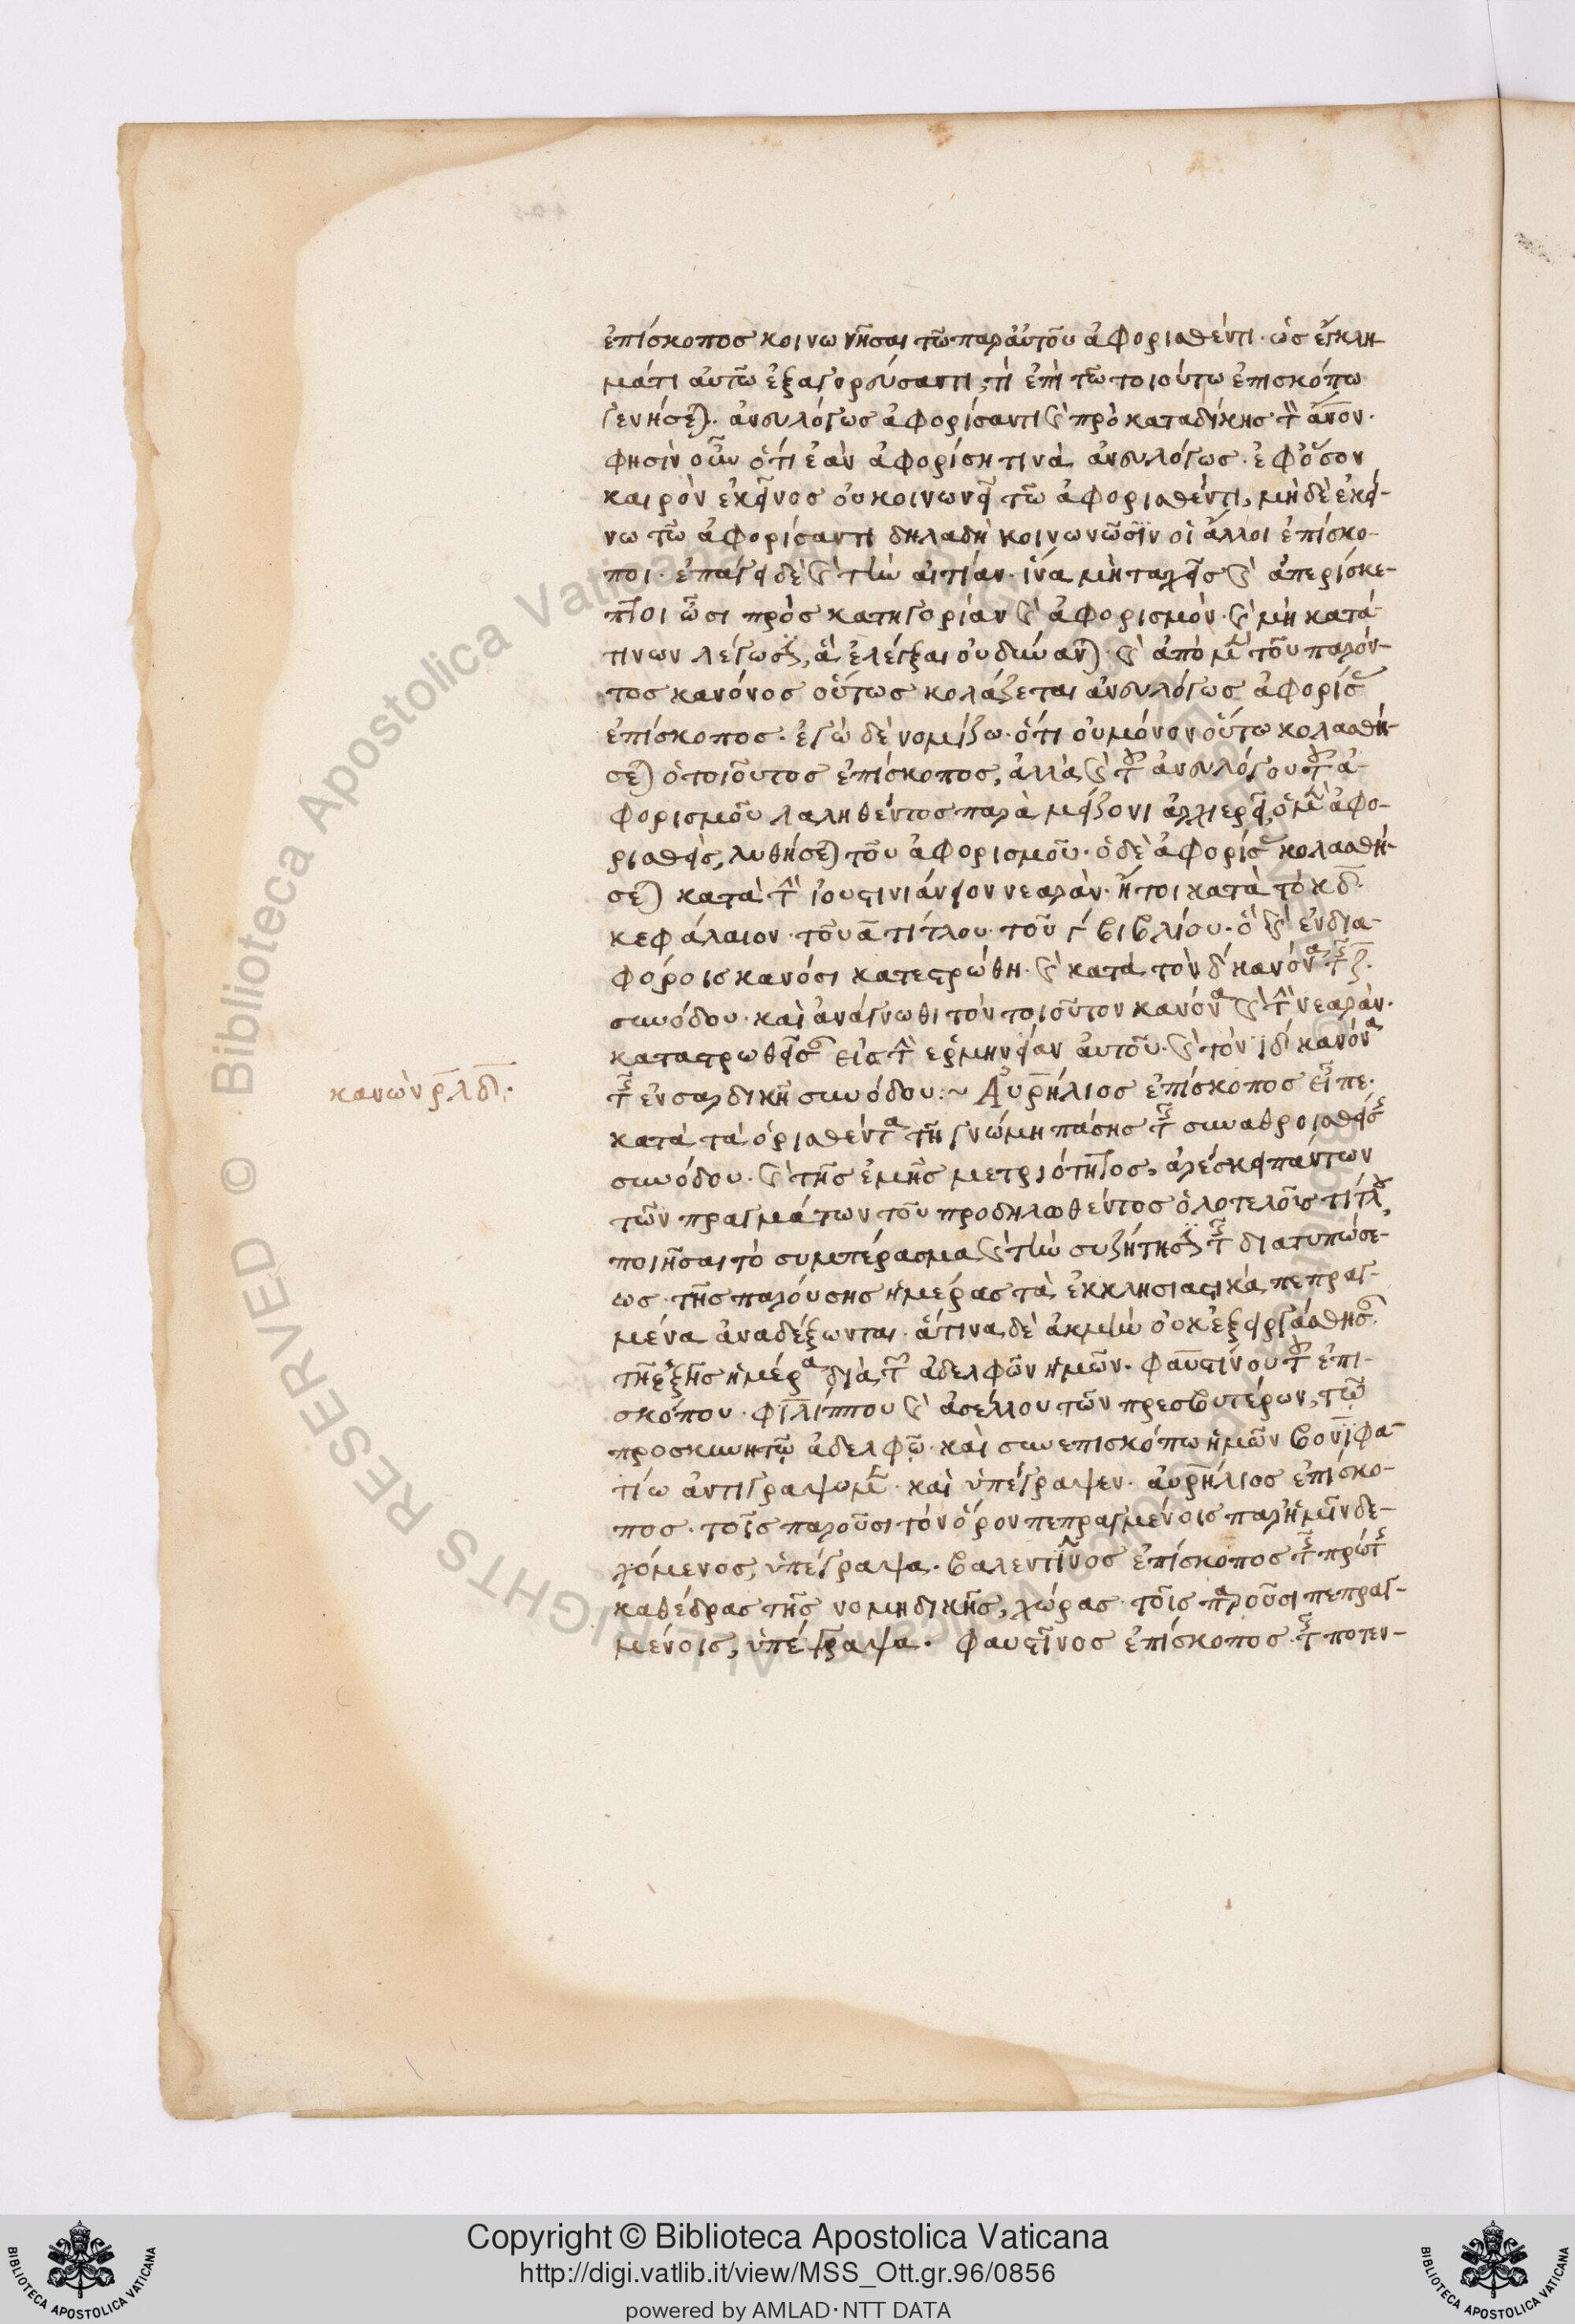 ἐπίσκοπος κοινωνῆσαι τῶ παρ' αὐτοῦ ἀφορισθέντι· ὡς ἐγκλη-
μάτι αὐτῶ ἐξαγορεύσαντι, τί ἐπὶ τῶ τοιούτω ἐπισκόπω
γενήσεται· ἀνευλόγως ἀφορίσαντι καὶ πρὸ καταδίκης τὸν ἄνον·
φησὶν οὖν ὅτι ἐὰν ἀφορίση τινὰ ἀνευλόγως· ἐφ' ὅσον
καιρὸν ἐκεῖνος οὐ κοινωνεῖ τῶ ἀφορισθέντι, μὴ δὲ ἐκεί-
νω τῶ ἀφορίσαντι δηλαδὴ κοινωνῶσιν οἱ ἄλλοι ἐπίσκο-
ποι· ἐπάγει δὲ καὶ τὴν αἰτίαν· ἵνα μὴ ταχεῖς καὶ ἀπερίσκε-
πτοι ὦσι πρὸς κατηγορίαν καὶ ἀφορισμόν· καὶ μὴ κατά
τινων λέγωσιν, ἃ ἐλέγξαι οὐ δύνανται· καὶ ἀπὸ μὲν τοῦ παρόν-
τος κανόνος οὕτως κολάζεται ἀνευλόγως ἀφορίσας
ἐπίσκοπος· ἐγὼ δὲ νομίζω· ὅτι οὐ μόνον οὕτω κολασθή-
σεται ὁ τοιοῦτος ἐπίσκοπος, ἀλλὰ καὶ τοῦ ἀνευλόγου τοῦ ἀ-
φορισμοῦ λαληθέντος παρὰ μείζονι ἀρχιερεῖ, ὁ μὲν ἀφο-
ρισθεὶς, λυθήσεται τοῦ ἀφορισμοῦ· ὁ δὲ ἀφορίσας κολασθή-
σεται κατὰ τὴν ἰουστινιάνειον νεαρὰν· ἤτοι κατὰ τὸ κδ·
κεφάλαιον· τοῦ α τίτλου· τοῦ γ βιβλίου· ὃ καὶ ἐν δια-
φόροις κανόσι κατεστρώθη· καὶ κατὰ τὸν δ κανόνα τῆς ζ·
συνόδου· καὶ ἀνάγνωθι τὸν τοιοῦτον κανόνα καὶ τὴν νεαρὰν·
καταστρωθεῖσαν εἰς τὴν ἑρμηνείαν αὐτοῦ· καὶ τὸν ιδ κανόνα
τῆς ἐν σαρδικῆ συνόδου:~ Αὐρήλιος ἐπίσκοπος εἶπε·
κανὼν ρλδ:·
κατὰ τὰ ὁρισθέντα τῆ γνώμη πάσης τῆς συναθροισθείσης
συνόδου· καὶ τῆς ἐμῆς μετριότητος, ἀρέσκει πάντων
τῶν πραγμάτων τοῦ προδηλωθέντος ὁλοτελοῦς τίτλου,
ποιῆσαι τὸ συμπέρασμα καὶ τὴν συζήτησιν τῆς διατυπώσε-
ως· τῆς παρούσης ἡμέρας τὰ ἐκκλησιαστικὰ πεπραγ-
μένα ἀναδέξωνται· ἅτινα δὲ ἀκμὴν οὐκ ἐξειργάσθησαν·
τῆ ἑξῆς ἡμέρα διὰ τῶν ἀδελφῶν ἡμῶν· φαυστίνου τοῦ ἐπι-
σκόπου· φιλίππου καὶ ἀσέλλου τῶν πρεσβυτέρων, τῶ
προσκυνητῶ ἀδελφῶ· καὶ συνεπισκόπω ἡμῶν βονιφα-
τίω ἀντιγράψωμεν· καὶ ὑπέγραψεν· αὐρήλιος ἐπίσκο-
πος· τοῖς παροῦσι τὸν ὅρον πεπραγμένοις παρ' ἡμῖν δε-
χόμενος, ὑπέγραψα· βαλεντῖνος ἐπίσκοπος τῆς πρώτης
καθέδρας τῆς νομηδικῆς, χώρας· τοῖς παροῦσι πεπραγ-
μένοις, ὑπέγραψα· Φαυστῖνος ἐπίσκοπος· τῆς ποτεν-
Copyright © Biblioteca Apostolica Vaticana
http://digi.vatlib.it/view/MSS_Ott.gr.96/0856
powered by AMLAD·NTT DATA